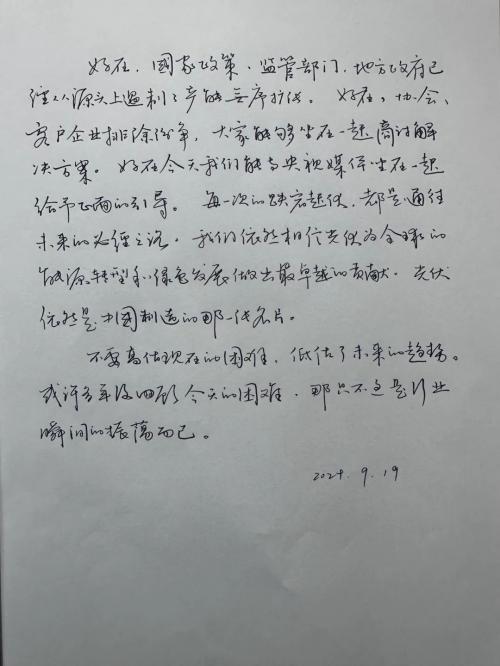 好在，国家政策、监管部门，地方政府已
经从源头上遏制了产能无序扩张。好在，协会、
客户企业排除纷争，大家能够坐在一起商讨解
决方案。好在今天我们能与央视媒体坐在一起
给予正面的引导。每一次的跌宕起伏，都是通往
未来的必经之路，我们依然相信光伏为全球的
能源转型和绿色发展做出最卓越的贡献。光伏
依然是中国制造的那一张名片。
不要高估现在的困难，低估了未来的趋势。
或许多年后回顾今天的困难，那只不过是行业
瞬间的振荡而已。
2024.9.19